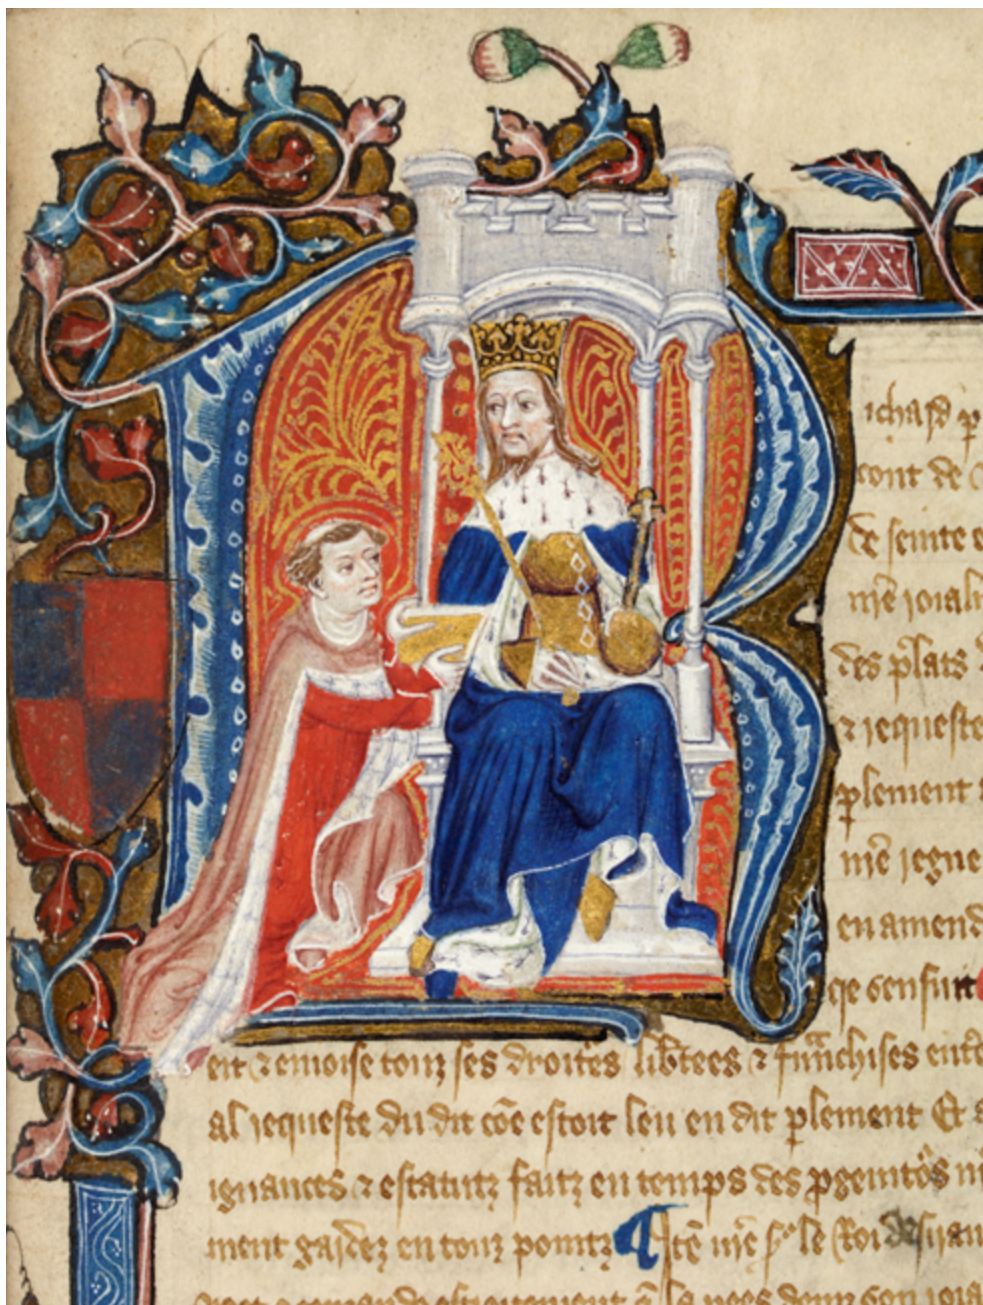 Richard p
cont de
de seinte e
nr̄e roial
des p̄lats
⁊ requeste
p̄lement
nr̄e regne
en amend
qe senfuit
eit ⁊ enioise touz ses droites lib̄tees ⁊ fr̄anchises ent
al requeste du dit cōe estoit leu en dit p̄lement Et
ignances ⁊ estatutz faitz en temps des p̄genitōs n
ment gardez en touz pointz ¶ Itē nr̄e sʳ le Roi desiran